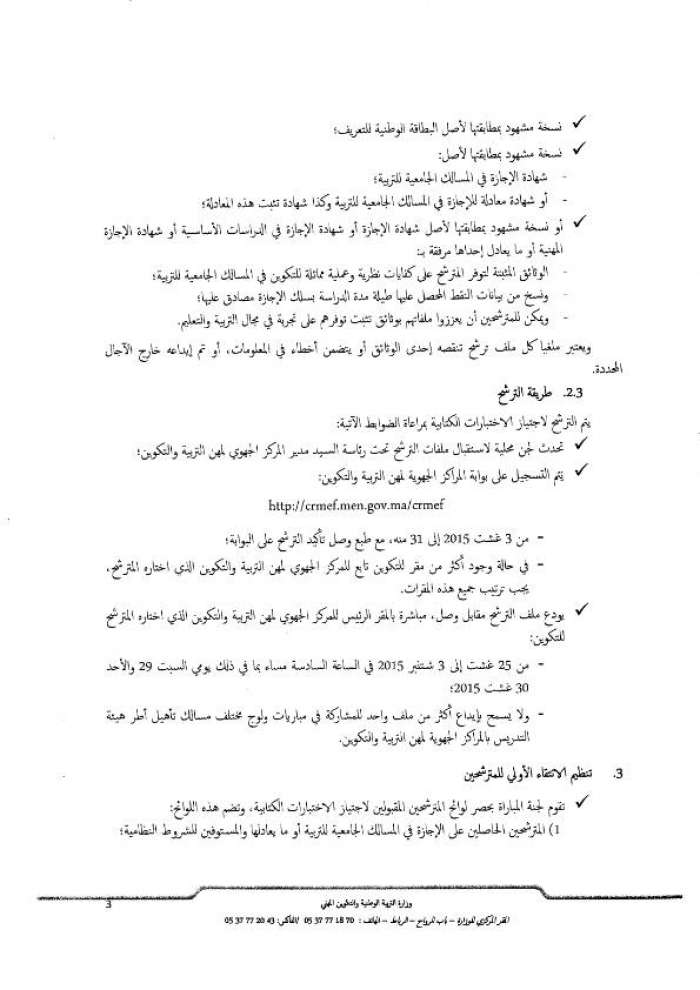 ✓ نسخة مشهود بمطابقتها لأصل البطاقة الوطنية للتعريف؛
✓ نسخة مشهود بمطابقتها لأصل:
- شهادة الإجازة في المسالك الجامعية للتربية؛
- أو شهادة معادلة للإجازة في المسالك الجامعية للتربية وكذا شهادة تثبت هذه المعادلة؛
✓ أو نسخة مشهود بمطابقتها لأصل شهادة الإجازة أو شهادة الإجازة في الدراسات الأساسية أو شهادة الإجازة
المهنية أو ما يعادل إحداها مرفقة بـ:
- الوثائق المثبتة لتوفر المترشح على كفايات نظرية وعملية مماثلة للتكوين في المسالك الجامعية للتربية؛
- ونسخ من بيانات النقط المحصل عليها طيلة مدة الدراسة بسلك الإجازة مصادق عليها؛
- ويمكن للمترشحين أن يعززوا ملفاتهم بوثائق تثبت توفرهم على تجربة في مجال التربية والتعليم.
ويعتبر ملغيا كل ملف ترشح تنقصه إحدى الوثائق أو يتضمن أخطاء في المعلومات، أو تم إيداعه خارج الآجال
المحددة.
2.3. طريقة الترشح
يتم الترشح لاجتياز الاختبارات الكتابية بمراعاة الضوابط الآتية:
✓ تحدث لجن محلية لاستقبال ملفات الترشح تحت رئاسة السيد مدير المركز الجهوي لمهن التربية والتكوين؛
✓ يتم التسجيل على بوابة المراكز الجهوية لمهن التربية والتكوين:
http://crmef.men.gov.ma/crmef
- من 3 غشت 2015 إلى 31 منه، مع طبع وصل تأكيد الترشح على البوابة؛
- في حالة وجود أكثر من مقر للتكوين تابع للمركز الجهوي لمهن التربية والتكوين الذي اختاره المترشح،
يجب ترتيب جميع هذه المقرات.
✓ يودع ملف الترشح مقابل وصل، مباشرة بالمقر الرئيس للمركز الجهوي لمهن التربية والتكوين الذي اختاره المترشح
للتكوين:
- من 25 غشت إلى 3 شتنبر 2015 في الساعة السادسة مساء بما في ذلك يومي السبت 29 والأحد
30 غشت 2015؛
- ولا يسمح بإيداع أكثر من ملف واحد للمشاركة في مباريات ولوج مختلف مسالك تأهيل أطر هيئة
التدريس بالمراكز الجهوية لمهن التربية والتكوين.
3. تنظيم الانتقاء الأولي للمترشحين
✓ تقوم لجنة المباراة بحصر لوائح المترشحين المقبولين لاجتياز الاختبارات الكتابية، وتضم هذه اللوائح:
1) المترشحين الحاصلين على الإجازة في المسالك الجامعية للتربية أو ما يعادلها والمستوفين للشروط النظامية؛
وزارة التربية الوطنية والتكوين المهني
3
المقر المركزي للوزارة – باب الرواح – الرباط – الهاتف: 70 18 77 37 05 /الفاكس: 43 20 77 37 05